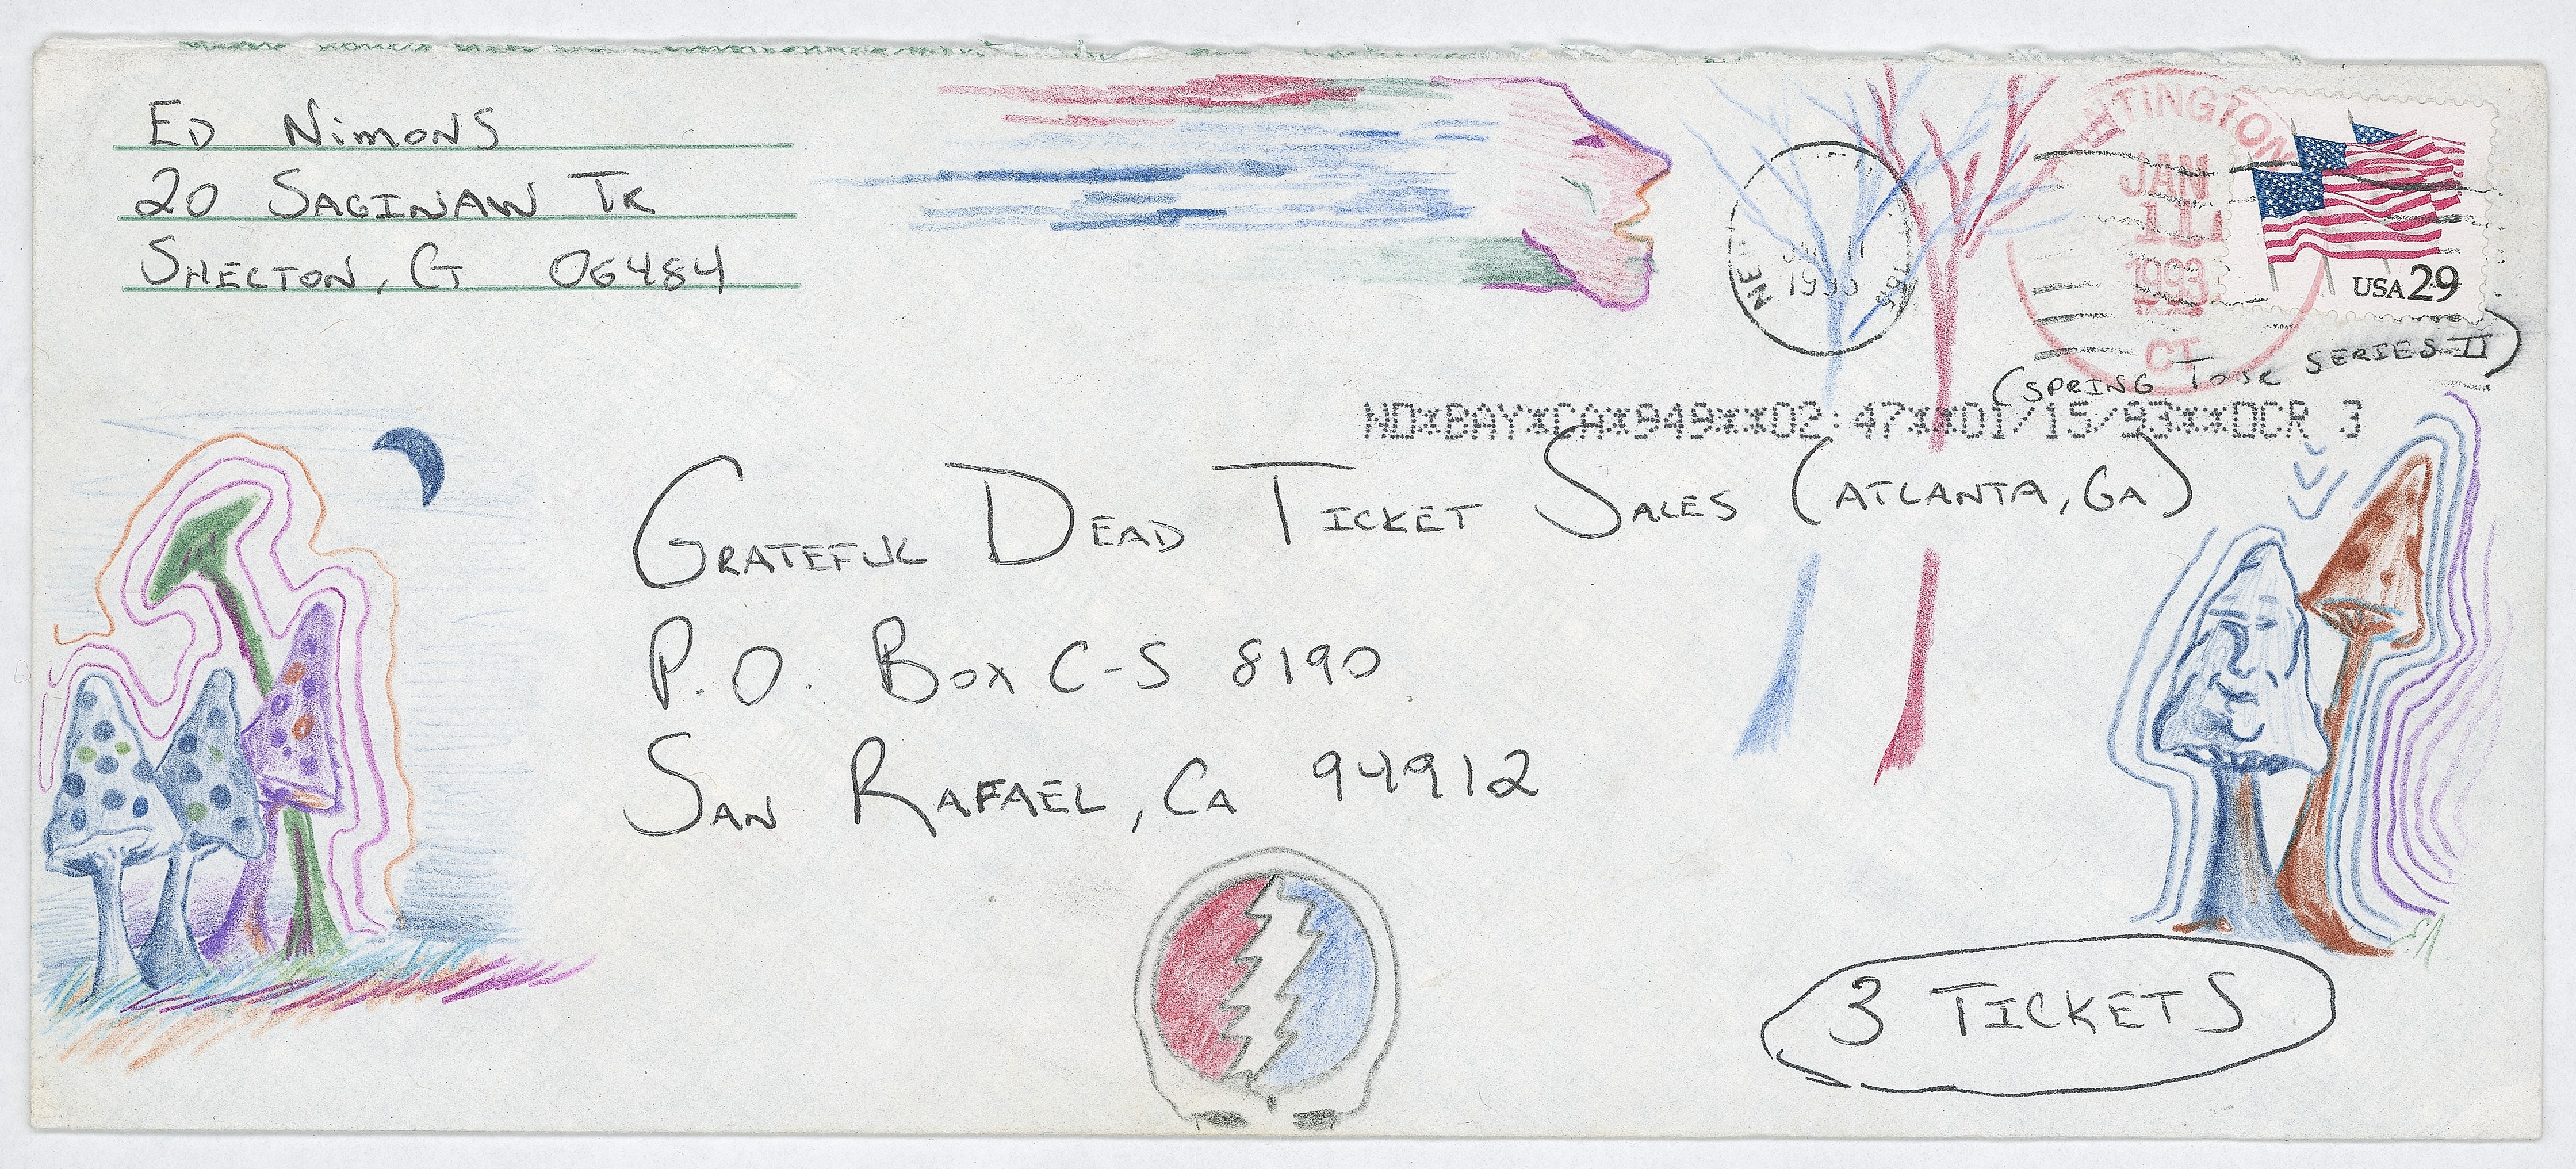 Ed Nimons
20 Saginaw Tr
Shelton, Ct 06484
JAN
11
1993
CT
USA 29
(Spring Tour Series II)
ND*BAY*CA*949**02:47**01/15/93**DCR 3
Grateful Dead Ticket Sales (Atlanta, Ga)
P.O. Box C-S 8190
San Rafael, Ca 94912
3 Tickets